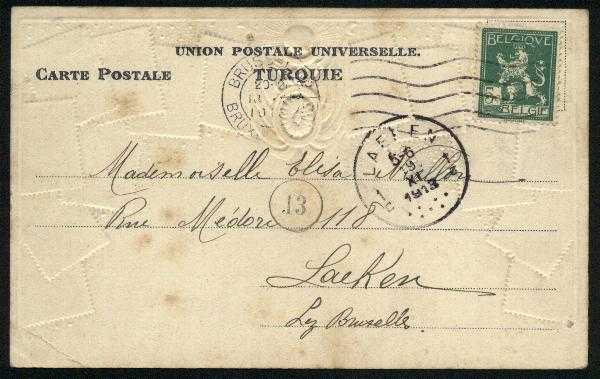 UNION POSTALE UNIVERSELLE.
CARTE POSTALE TURQUIE
BELGIQUE
5
BELGIË
LAEKEN
5-6
XI
1913
Mademoiselle Elisa
13
Rue Médori 118
Laeken
Lez Bruxelles